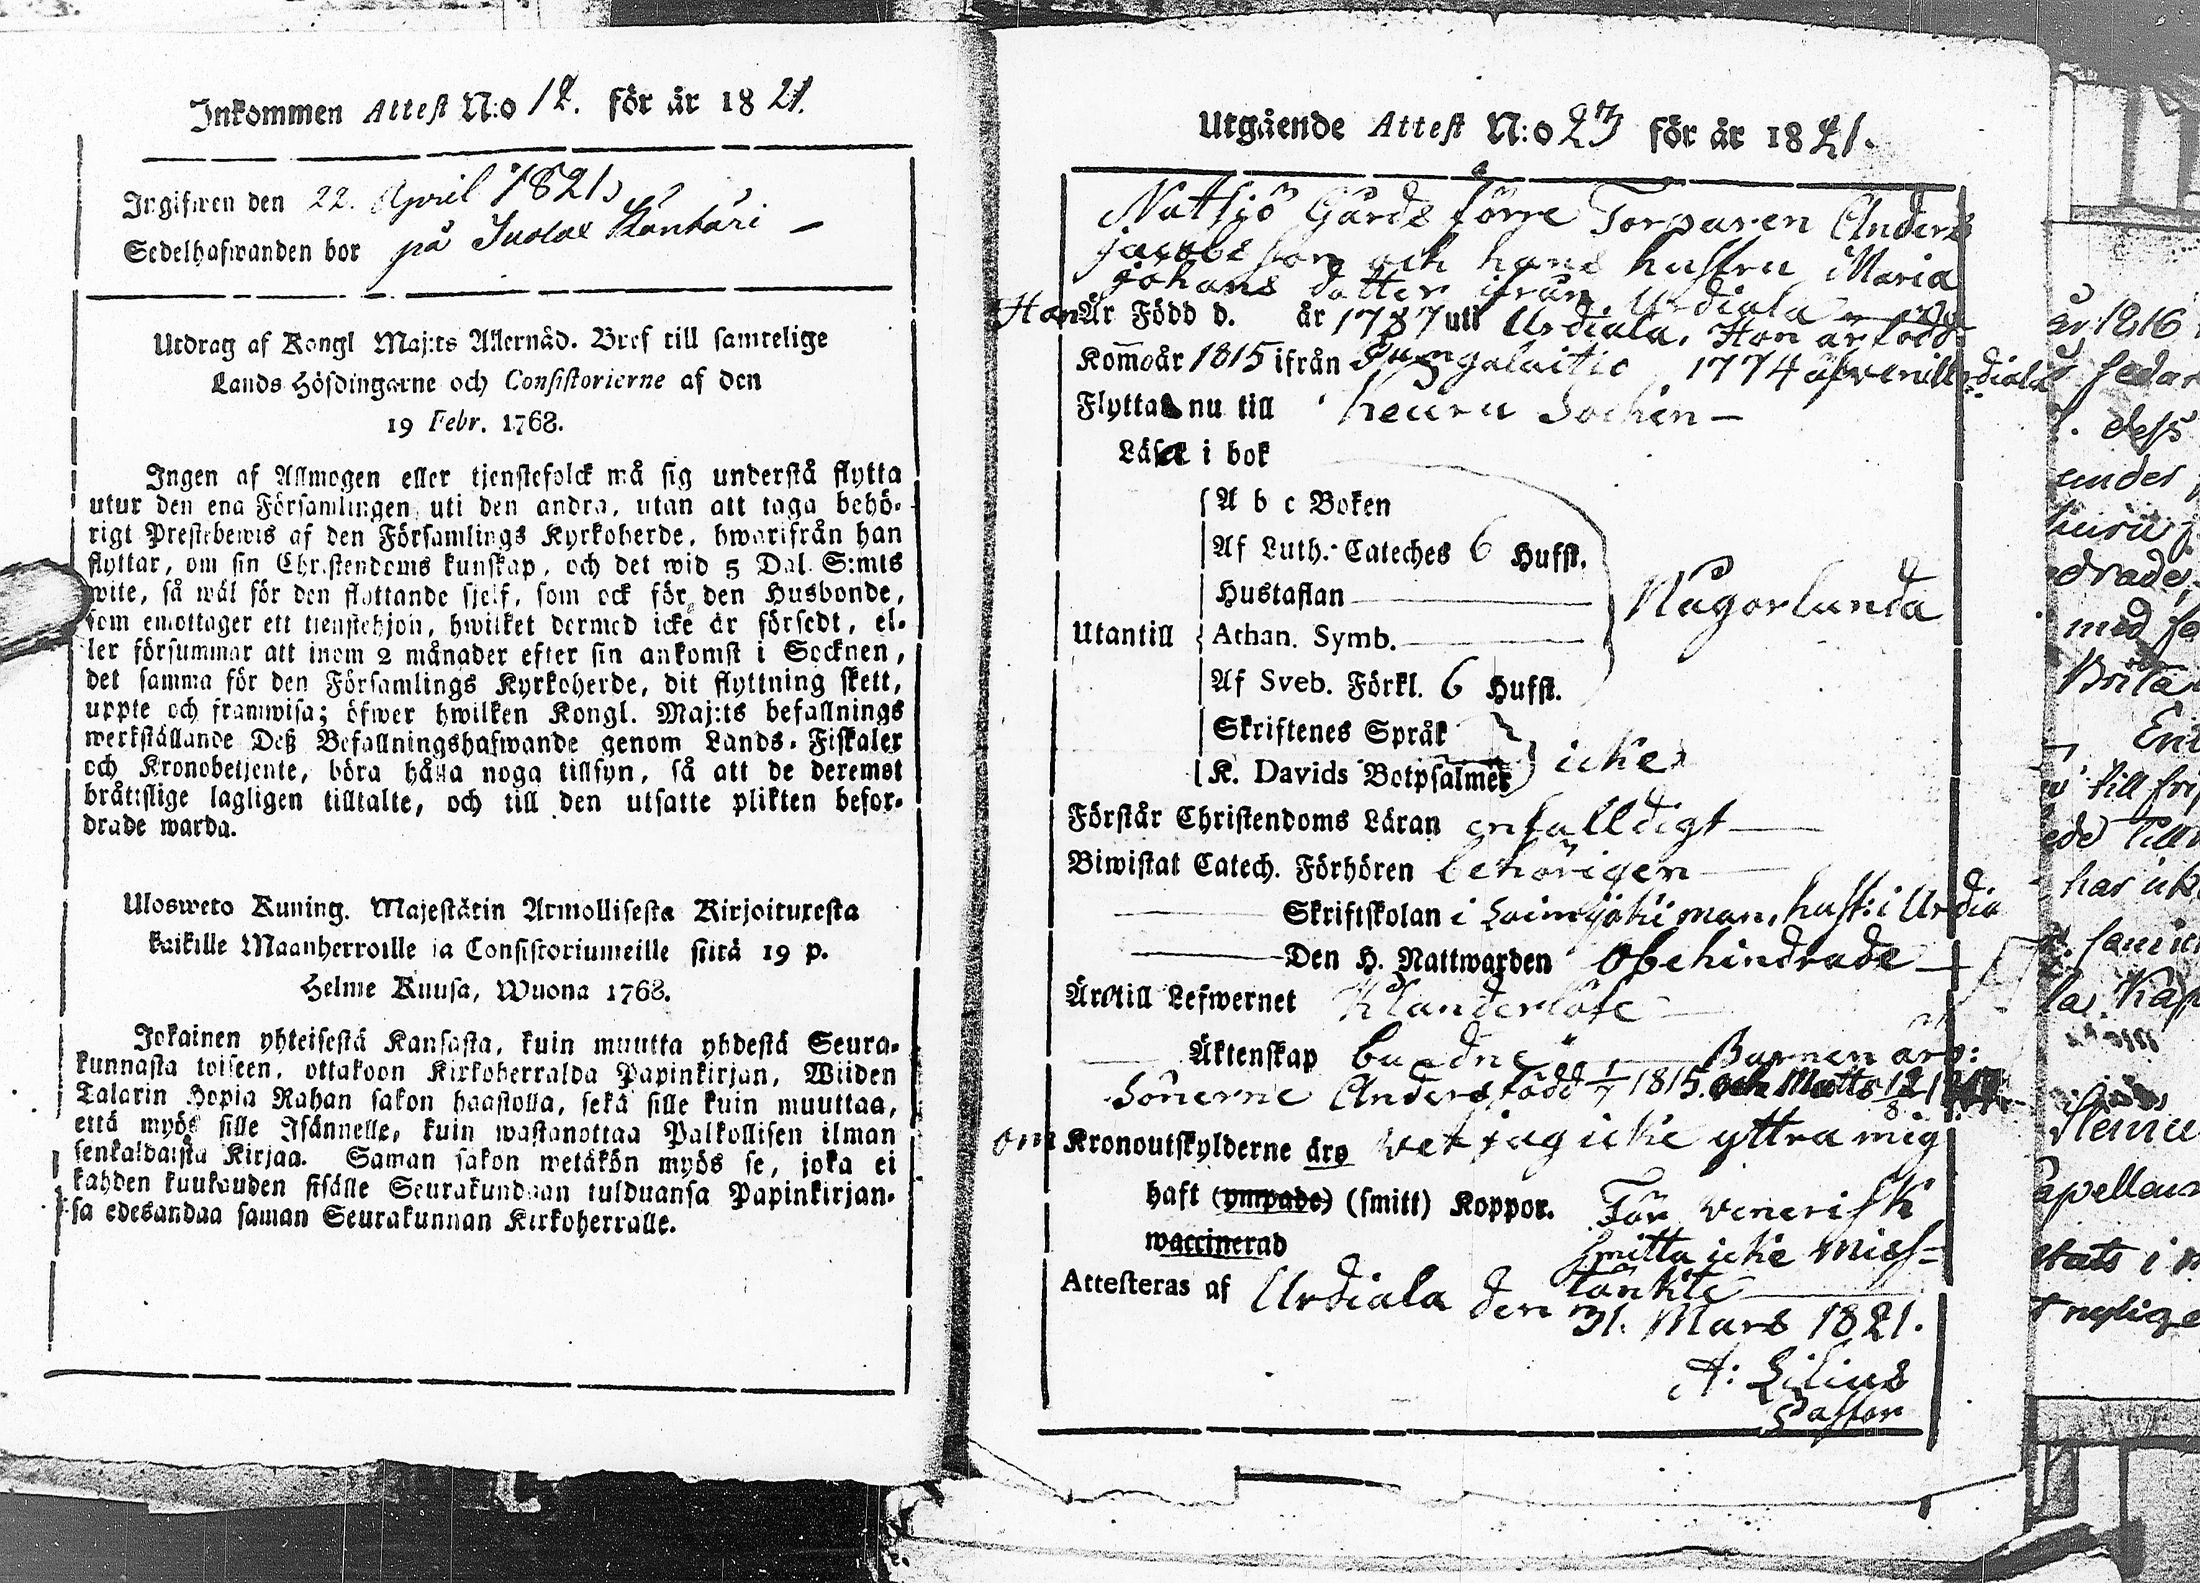 Inkommen Attest N:o 12. för år 1821.
Ingifwen den 22. April 1821
Sedelhafwanden bor på
Utdrag af Kongl Maj:ts Allernåd. Bref till samtelige
Lands Höfdingarne och Consistorierne af den
19 Febr. 1768.
Ingen af Allmogen eller tjenstefolck må sig understå flytta
utur den ena Församlingen uti den andra, utan att taga behö-
rigt Prestebewis af den Församlings Kyrkoherde, hwarifrån han
flyttar, om sin Christendoms kunskap, och det wid 5 Dal. S:mts
wite, så wäl för den flyttande sjelf, som ock för den Husbonde,
som emottager ett tienstehjon, hwilket dermed icke är försedt, el-
ler försummar att inom 2 månader efter sin ankomst i Socknen,
det samma för den Församlings Kyrkoherde, dit flyttning skett,
uppte och framwisa; öfwer hwilken Kongl. Maj:ts befallnings
werkställande Deß Befallningshafwande genom Lands-Fiskaler
och Kronobetjente, böra hålla noga tillsyn, så att de deremot
bråttslige lagligen tilltalte, och till den utsatte plikten befor-
drade warda.
Uloswetο Kuning. Majestätin Armollisesta Kirjoituxesta
kaikille Maanherroille ja Consistoriumeille siitä 19 p.
Helme Kuusa, Wuona 1768.
Jokainen yhteisestä Kansasta, kuin muutta yhdestä Seura-
kunnasta toiseen, ottakoon Kirkoherralda Papinkirjan, Wiiden
Talarin Hopia Rahan sakon haastolla, sekä sille kuin muuttaa,
että myös sille Isännelle, kuin wastanottaa Palkollisen ilman
senkaldaista Kirjaa. Saman sakon wetäkön myös se, joka ei
kahden kuukauden sisälle Seurakundaan tulduansa Papinkirjan-
sa edesandaa saman Seurakunnan Kirkoherralle.
Utgående Attest N:o 23 för år 1821.
Nutsjö Gårds förre Torparen Anders
Jacobsson och hans hustru Maria
Johans dotter ifrån Urdiala
Han Är Född d. år 1787 uti Urdiala, Hon är född
Kom̄o år 1815 ifrån 1774 äfwen i Urdiala
Flytta nu till Socken
Läsa i bok
A b c Boken
Af Luth. Cateches 6 Hufst.
Hustaflan
Utantill Athan. Symb. Någorlunda
Af Sveb. Förkl. 6 Hufst.
Skriftenes Språk
K. Davids Botpsalmer icke
Förstår Christendoms Läran enfalldigt
Biwistat Catech. Förhören behörigen
Skriftskolan i Loimijoki man, hust: i Urdia
Den H. Nattwarden Obehindrade
Äro till Lefwernet Klanderlöse
Äktenskap bundne Barnen äro:
Sönerne Anders född 1/7 1815. och Matts
om Kronoutskylderne äro vet jag icke yttra mig
haft (ympade) (smitt) Koppor. För venerisk
waccinerad smitta icke miss-
tänkte
Attesteras af Urdiala den 31. Mars 1821.
A: Lilius
Pastor